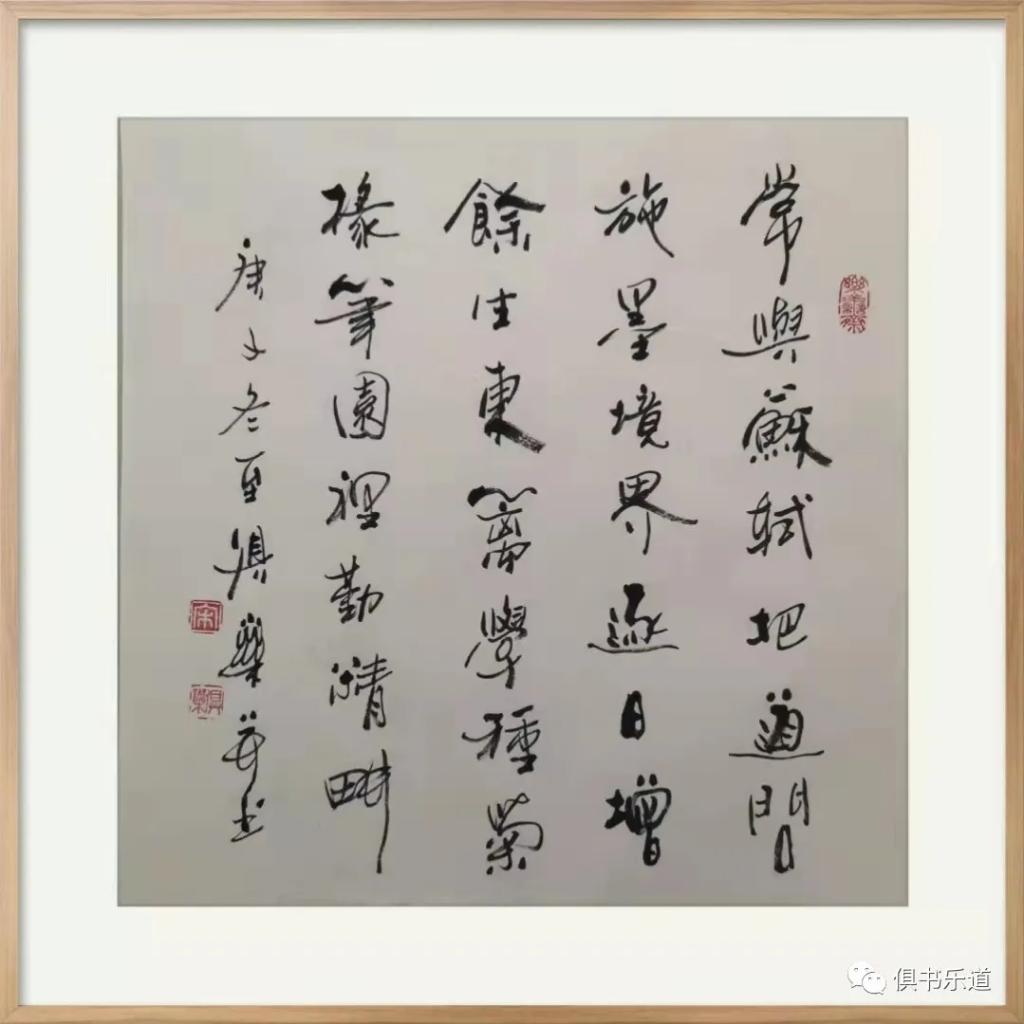 常與蘇軾把道問
施墨境界逐日增
餘生東籬學種菊
椽筆園裡勤精畊
庚子冬至俱樂并书
宋
俱樂
俱书乐道